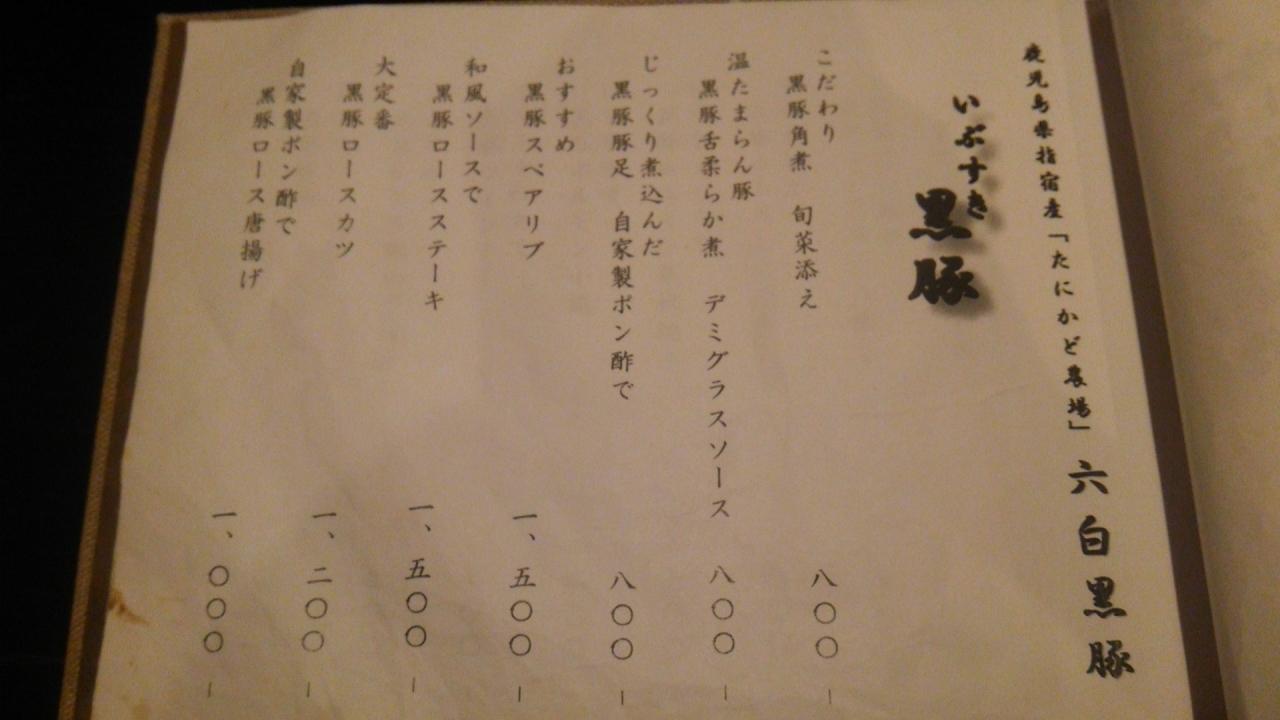 鹿児島県指宿産「たにかど農場」 六白黒豚
いぶすき
黒豚
こだわり
黒豚角煮 旬菜添え 八〇〇ー
温たまらん豚
黒豚舌柔らか煮 デミグラスソース 八〇〇ー
じっくり煮込んだ
黒豚豚足 自家製ポン酢で 八〇〇ー
おすすめ
黒豚スペアリブ 一、五〇〇ー
和風ソースで
黒豚ロースステーキ 一、五〇〇ー
大定番
黒豚ロースカツ 一、二〇〇ー
自家製ポン酢で
黒豚ロース唐揚げ 一、〇〇〇ー